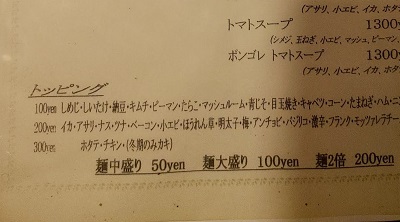 (アサリ、小エビ、イカ、ホタ
トマトスープ 1300
(シメジ、玉ねぎ、小エビ、マッシュ、ピーマン、
ボンゴレ トマトスープ 1300
(アサリ、小エビ、イカ、ホ
トッピング
100yen しめじ・しいたけ・納豆・キムチ・ピーマン・たらこ・マッシュルーム・青じそ・目玉焼き・キャベツ・コーン・たまねぎ・ハム・ニン
200yen イカ・アサリ・ナス・ツナ・ベーコン・小エビ・ほうれん草・明太子・梅・アンチョビ・バジリコ・激辛・フランク・モッツァレラチー
300yen ホタテ・チキン・(冬期のみカキ)
麺中盛り 50yen 麺大盛り 100yen 麺2倍 200yen